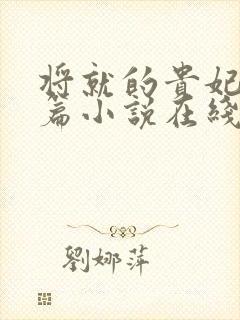 将就的貴妃
篇小説在綫
劉娜萍